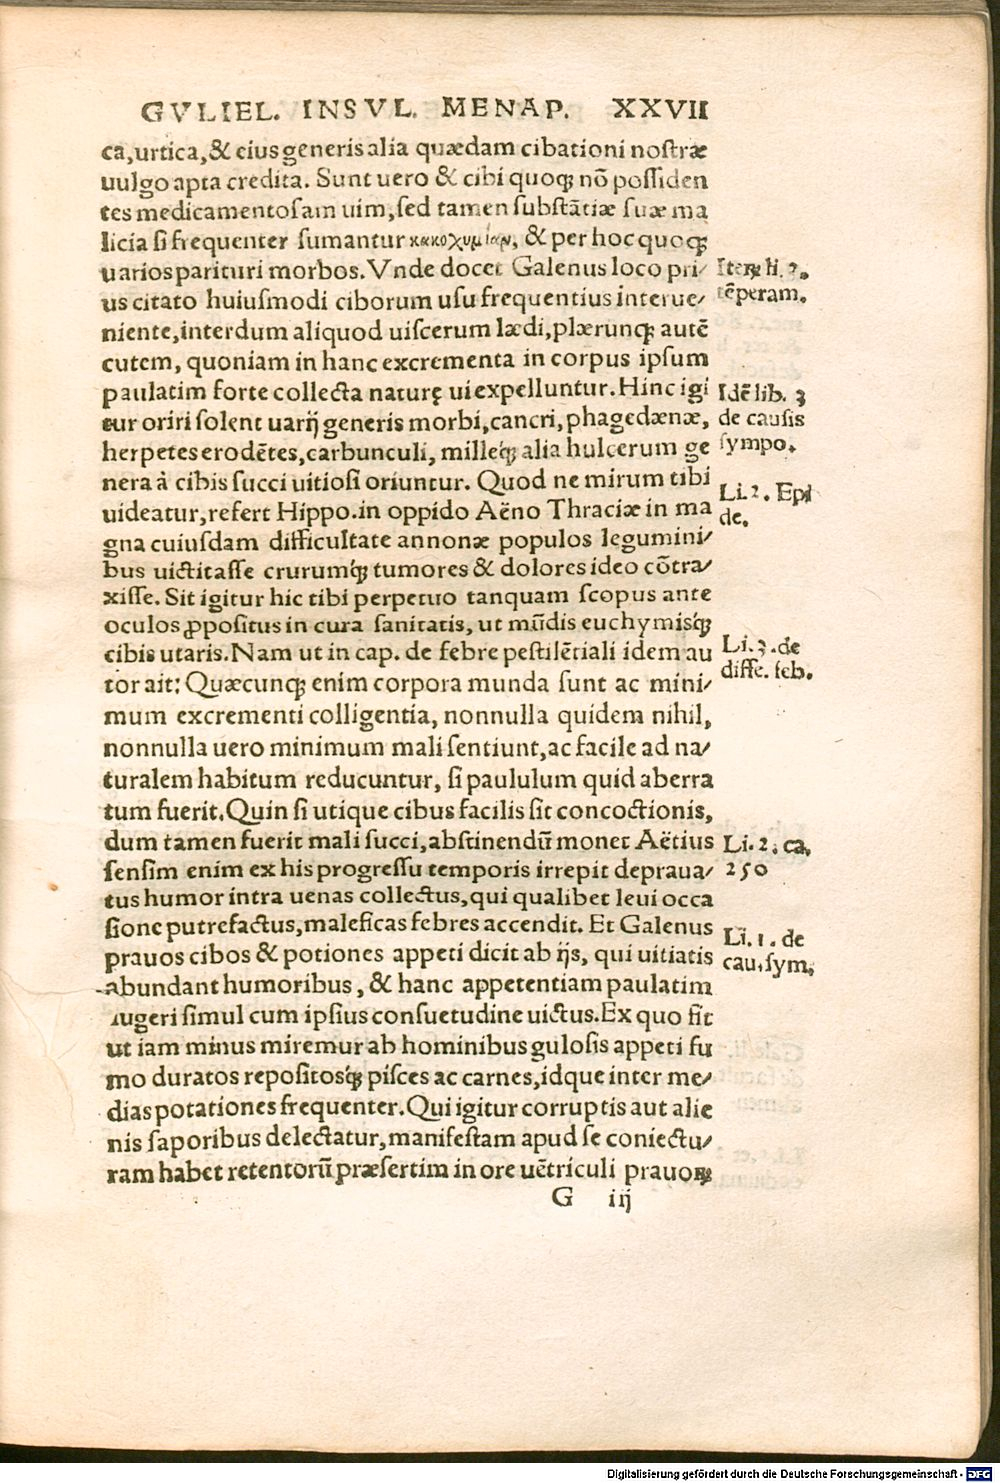 GVLIEL. INSVL. MENAP. XXVII
ca, urtica, & eius generis alia quædam cibationi nostræ
uulgo apta credita. Sunt uero & cibi quoqꝫ nō possiden
tes medicamentosam uim, sed tamen substātiæ suæ ma
licia si frequenter sumantur κακοχυμίαν, & per hoc quoqꝫ
uarios parituri morbos. Vnde docet Galenus loco pri/
us citato huiusmodi ciborum usu frequentius interue/
niente, interdum aliquod uiscerum lædi, plærunqꝫ autē
cutem, quoniam in hanc excrementa in corpus ipsum
paulatim forte collecta naturę ui expelluntur. Hinc igi
tur oriri solent uarij generis morbi, cancri, phagedænæ,
herpetes erodētes, carbunculi, milleq́ꝫ alia hulcerum ge
nera à cibis succi uitiosi oriuntur. Quod ne mirum tibi
uideatur, refert Hippo. in oppido Aëno Thraciæ in ma
gna cuiusdam difficultate annonæ populos legumini/
bus uictitasse crurumq́ꝫ tumores & dolores ideo cōtra/
xisse. Sit igitur hic tibi perpetuo tanquam scopus ante
oculos ꝓpositus in cura sanitatis, ut mūdis euchymisq́ꝫ
cibis utaris. Nam ut in cap. de febre pestilētiali idem au
tor ait: Quæcunqꝫ enim corpora munda sunt ac mini/
mum excrementi colligentia, nonnulla quidem nihil,
nonnulla uero minimum mali sentiunt, ac facile ad na/
turalem habitum reducuntur, si paululum quid aberra
tum fuerit. Quin si utique cibus facilis sit concoctionis,
dum tamen fuerit mali succi, abstinendū monet Aëtius
sensim enim ex his progressu temporis irrepit depraua/
tus humor intra uenas collectus, qui qualibet leui occa
sione putrefactus, maleficas febres accendit. Et Galenus
prauos cibos & potiones appeti dicit ab ijs, qui uitiatis
abundant humoribus, & hanc appetentiam paulatim
augeri simul cum ipsius consuetudine uictus. Ex quo fit
ut iam minus miremur ab hominibus gulosis appeti fu
mo duratos repositosq́ꝫ pisces ac carnes, idque inter me/
dias potationes frequenter. Qui igitur corruptis aut alie
nis saporibus delectatur, manifestam apud se coniectu/
ram habet retentorū præsertim in ore uētriculi prauoꝝ
G iij
Iteꝝ li. 2.
tēperam.
Idē lib. 3
de causis
sympo.
Li. 2. Epi
de.
Li. 3. de
diffe. feb.
Li. 2. ca.
250
Li. 1. de
cau. sym.
Digitalisierung gefördert durch die Deutsche Forschungsgemeinschaft - DFG